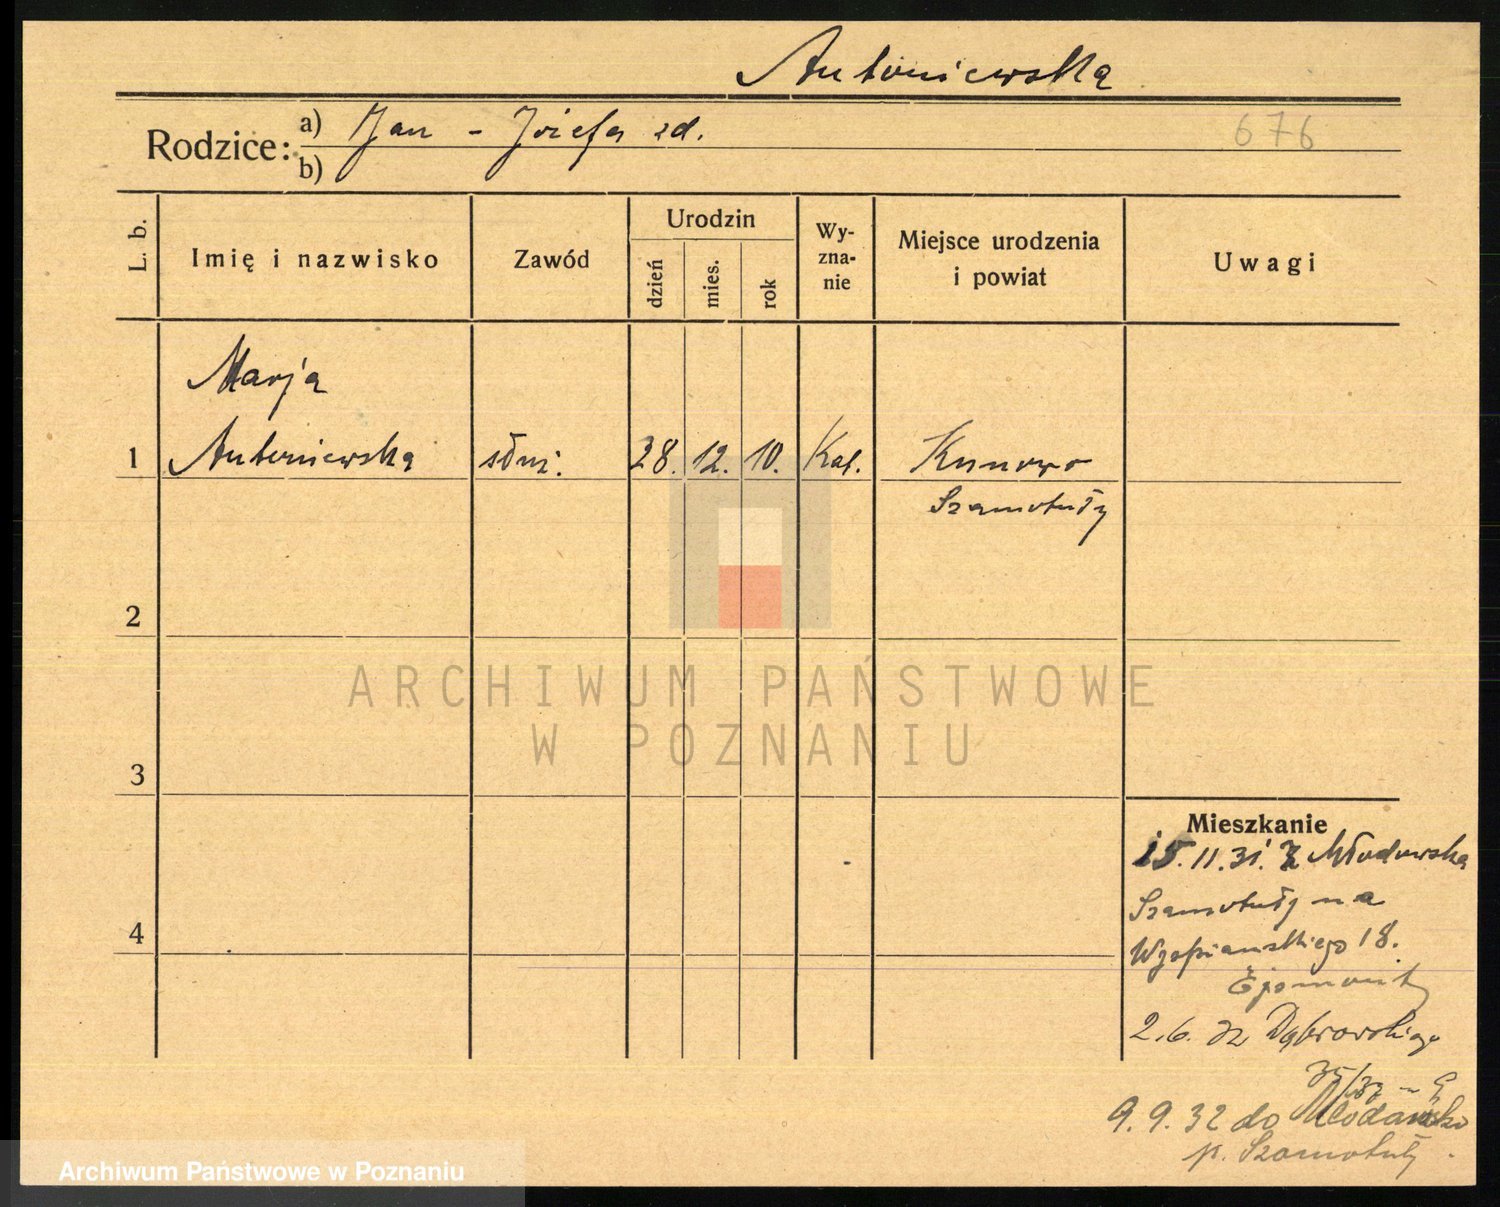 Antoniewska
Rodzice: a) Jan - Józefa zd.
b)
676
L. b.
Imię i nazwisko
Zawód
Urodzin
dzień
mies.
rok
Wy-
zna-
nie
Miejsce urodzenia
i powiat
Uwagi
Marja
1 Antoniewska służ. 28. 12. 10. Kat. Kunowo
Szamotuły
2
ARCHIWUM PAŃSTWOWE
W POZNANIU
3
4
Mieszkanie
15. 11. 31. z Młodawska
Szamotuły na
Wyspianskiego 18.
2. 6. 32 Dąbrowskiego
35/37 - 9
9. 9. 32 do Młodawsko
p. Szamotuły.
Archiwum Państwowe w Poznaniu